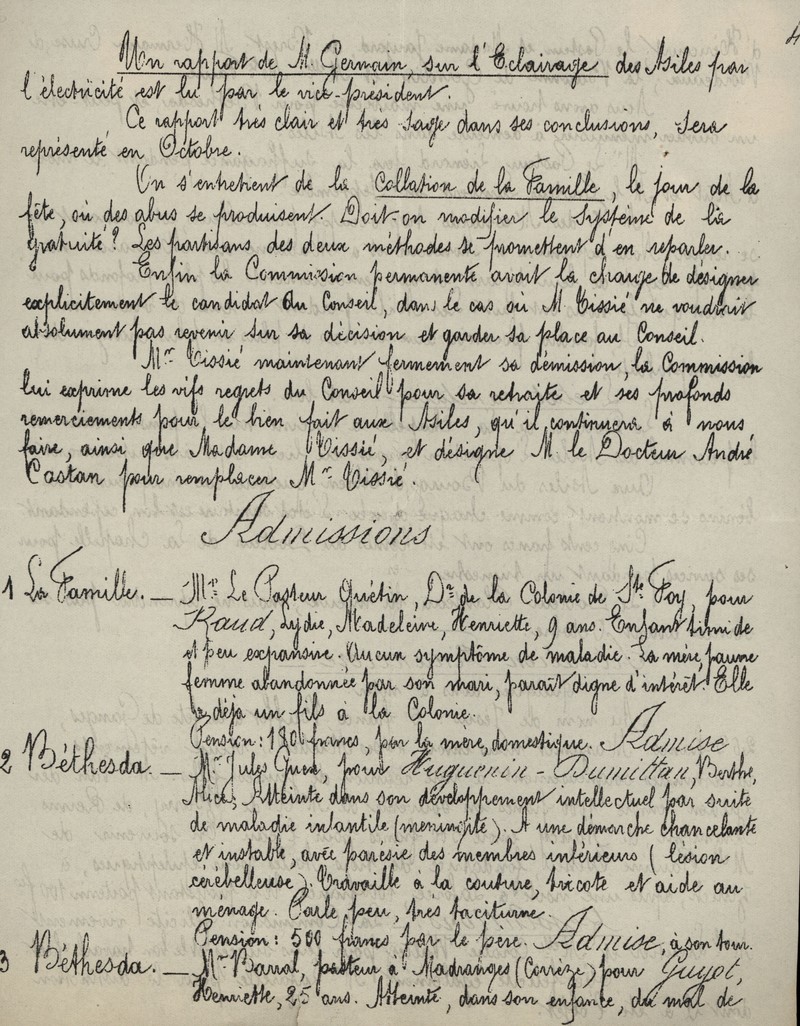 4
Un rapport de M. Germain, sur l'Eclairage des Asiles par
l'électricité est lu par le vice-président.
Ce rapport très clair et très sage dans ses conclusions, sera
représenté en Octobre.
On s'entretient de la Collation de la Famille, le jour de la
fête, où des abus se produisent. Doit-on modifier le système de la
gratuité? Les partisans des deux méthodes se promettent d'en reparler.
Enfin la Commission permanente avait la charge de désigner
explicitement le candidat du Conseil, dans le cas où M Tissié ne voudrait
absolument pas revenir sur sa décision et garder sa place au Conseil.
Mr. Tissié maintenant fermement sa démission, la Commission
lui exprime les vifs regrets du Conseil pour sa retraite et ses profonds
remerciements pour le bien fait aux Asiles, qu'il continuera à nous
faire, ainsi que Madame Tissié, et désigne M. le Docteur André
Castan pour remplacer Mr. Tissié.
Admissions
1 La Famille. — Mr. Le Pasteur Quétin, Dr. de la Colonie de Ste. Foy, pour
Raud, Lydie, Madeleine, Henriette, 9 ans. Enfant timide
et peu expansive. Aucun symptôme de maladie. La mère, pauvre
femme abandonnée par son mari, paraît digne d'intérêt. Elle
a déja un fils à la Colonie.
Pension: 180 francs, par la mère, domestique. Admise
2 Béthesda. — Mr. Jules Guex, pour Huguenin-Dumittan, Berthe,
Alice; Atteinte dans son développement intellectuel par suite
de maladie infantile (meningite). A une démarche chancelante
et instable, avec parésie des membres inférieurs (lésion
cérébelleuse). Travaille à la couture, tricote et aide au
ménage. Parle peu, très taciturne.
Pension: 500 francs par le père. Admise, à son tour.
3 Béthesda. — Mr. Barral, pasteur à Madranges (Corrèze) pour Guyot,
Henriette, 25 ans. Atteinte, dans son enfance, du mal de